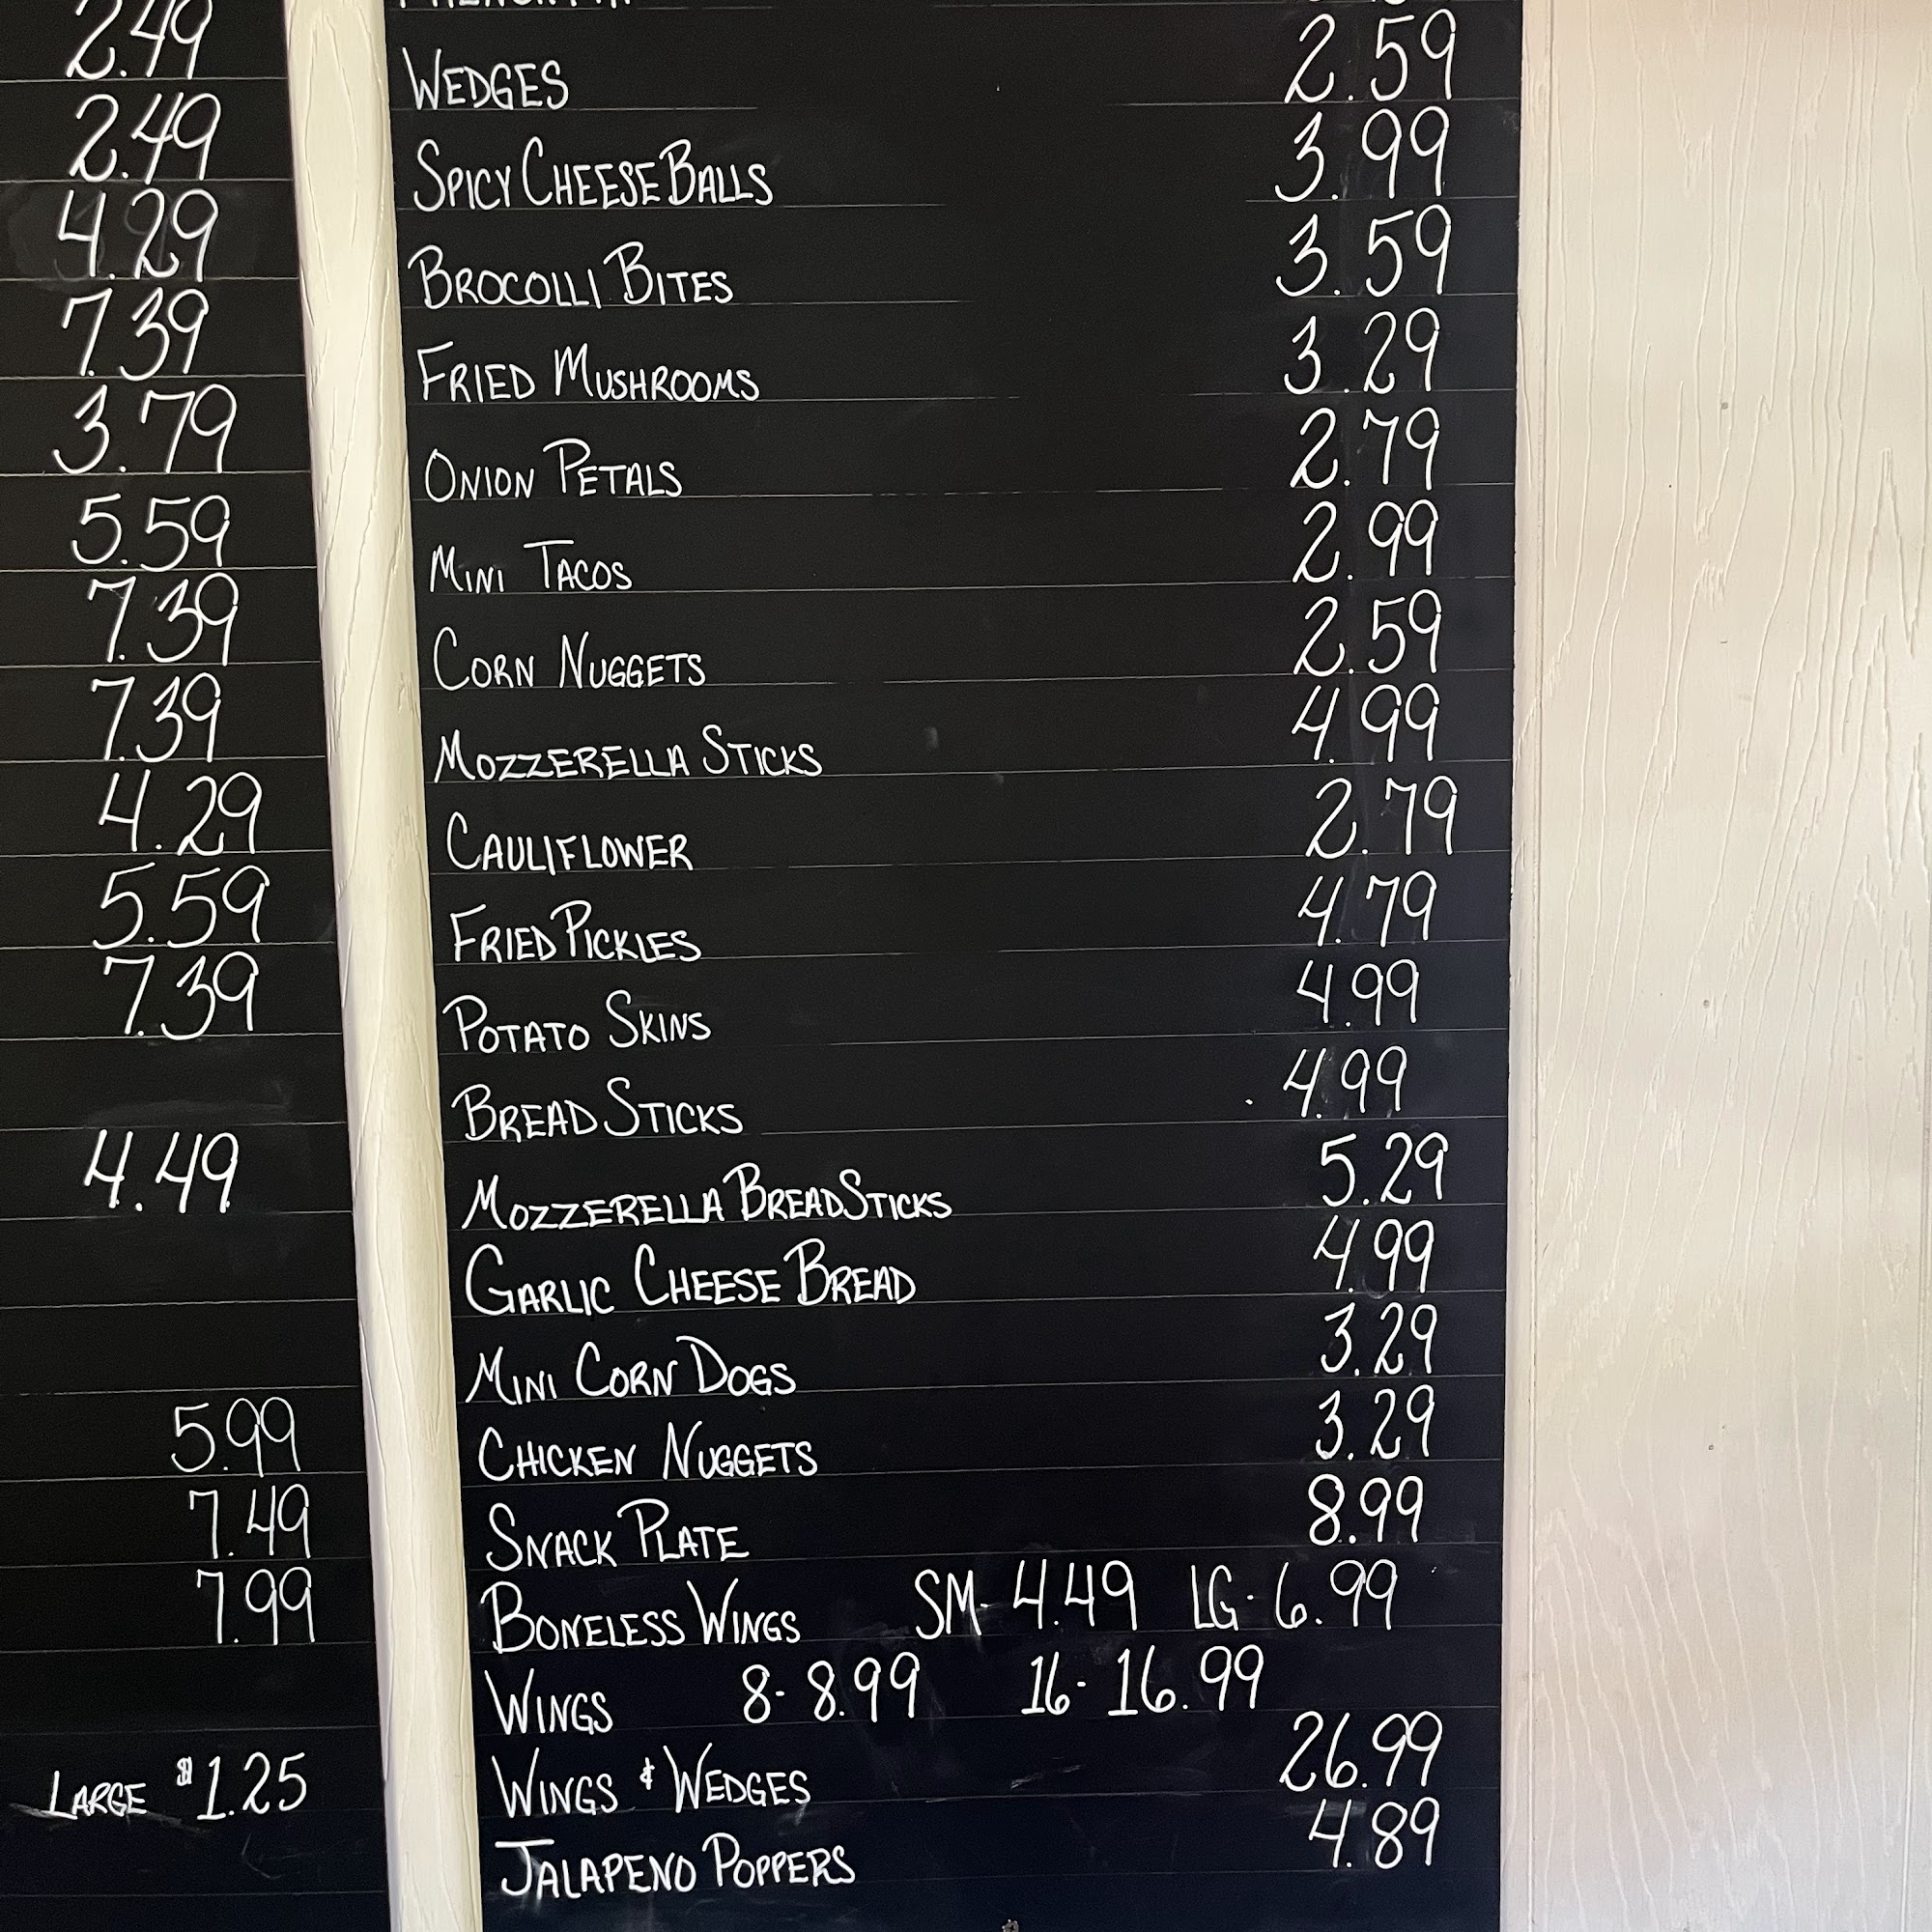 2.49
2.49
4.29
7.39
3.79
5.59
7.39
7.39
4.29
5.59
7.39
4.49
5.99
7.49
7.99
LARGE $1.25
WEDGES 2.59
SPICY CHEESE BALLS 3.99
BROCOLLI BITES 3.59
FRIED MUSHROOMS 3.29
ONION PETALS 2.79
MINI TACOS 2.99
CORN NUGGETS 2.59
MOZZERELLA STICKS 4.99
CAULIFLOWER 2.79
FRIED PICKLES 4.79
POTATO SKINS 4.99
BREAD STICKS 4.99
MOZZERELLA BREADSTICKS 5.29
GARLIC CHEESE BREAD 4.99
MINI CORN DOGS 3.29
CHICKEN NUGGETS 3.29
SNACK PLATE 8.99
BONELESS WINGS SM- 4.49 LG- 6.99
WINGS 8- 8.99 16- 16.99
WINGS & WEDGES 26.99
JALAPENO POPPERS 4.89